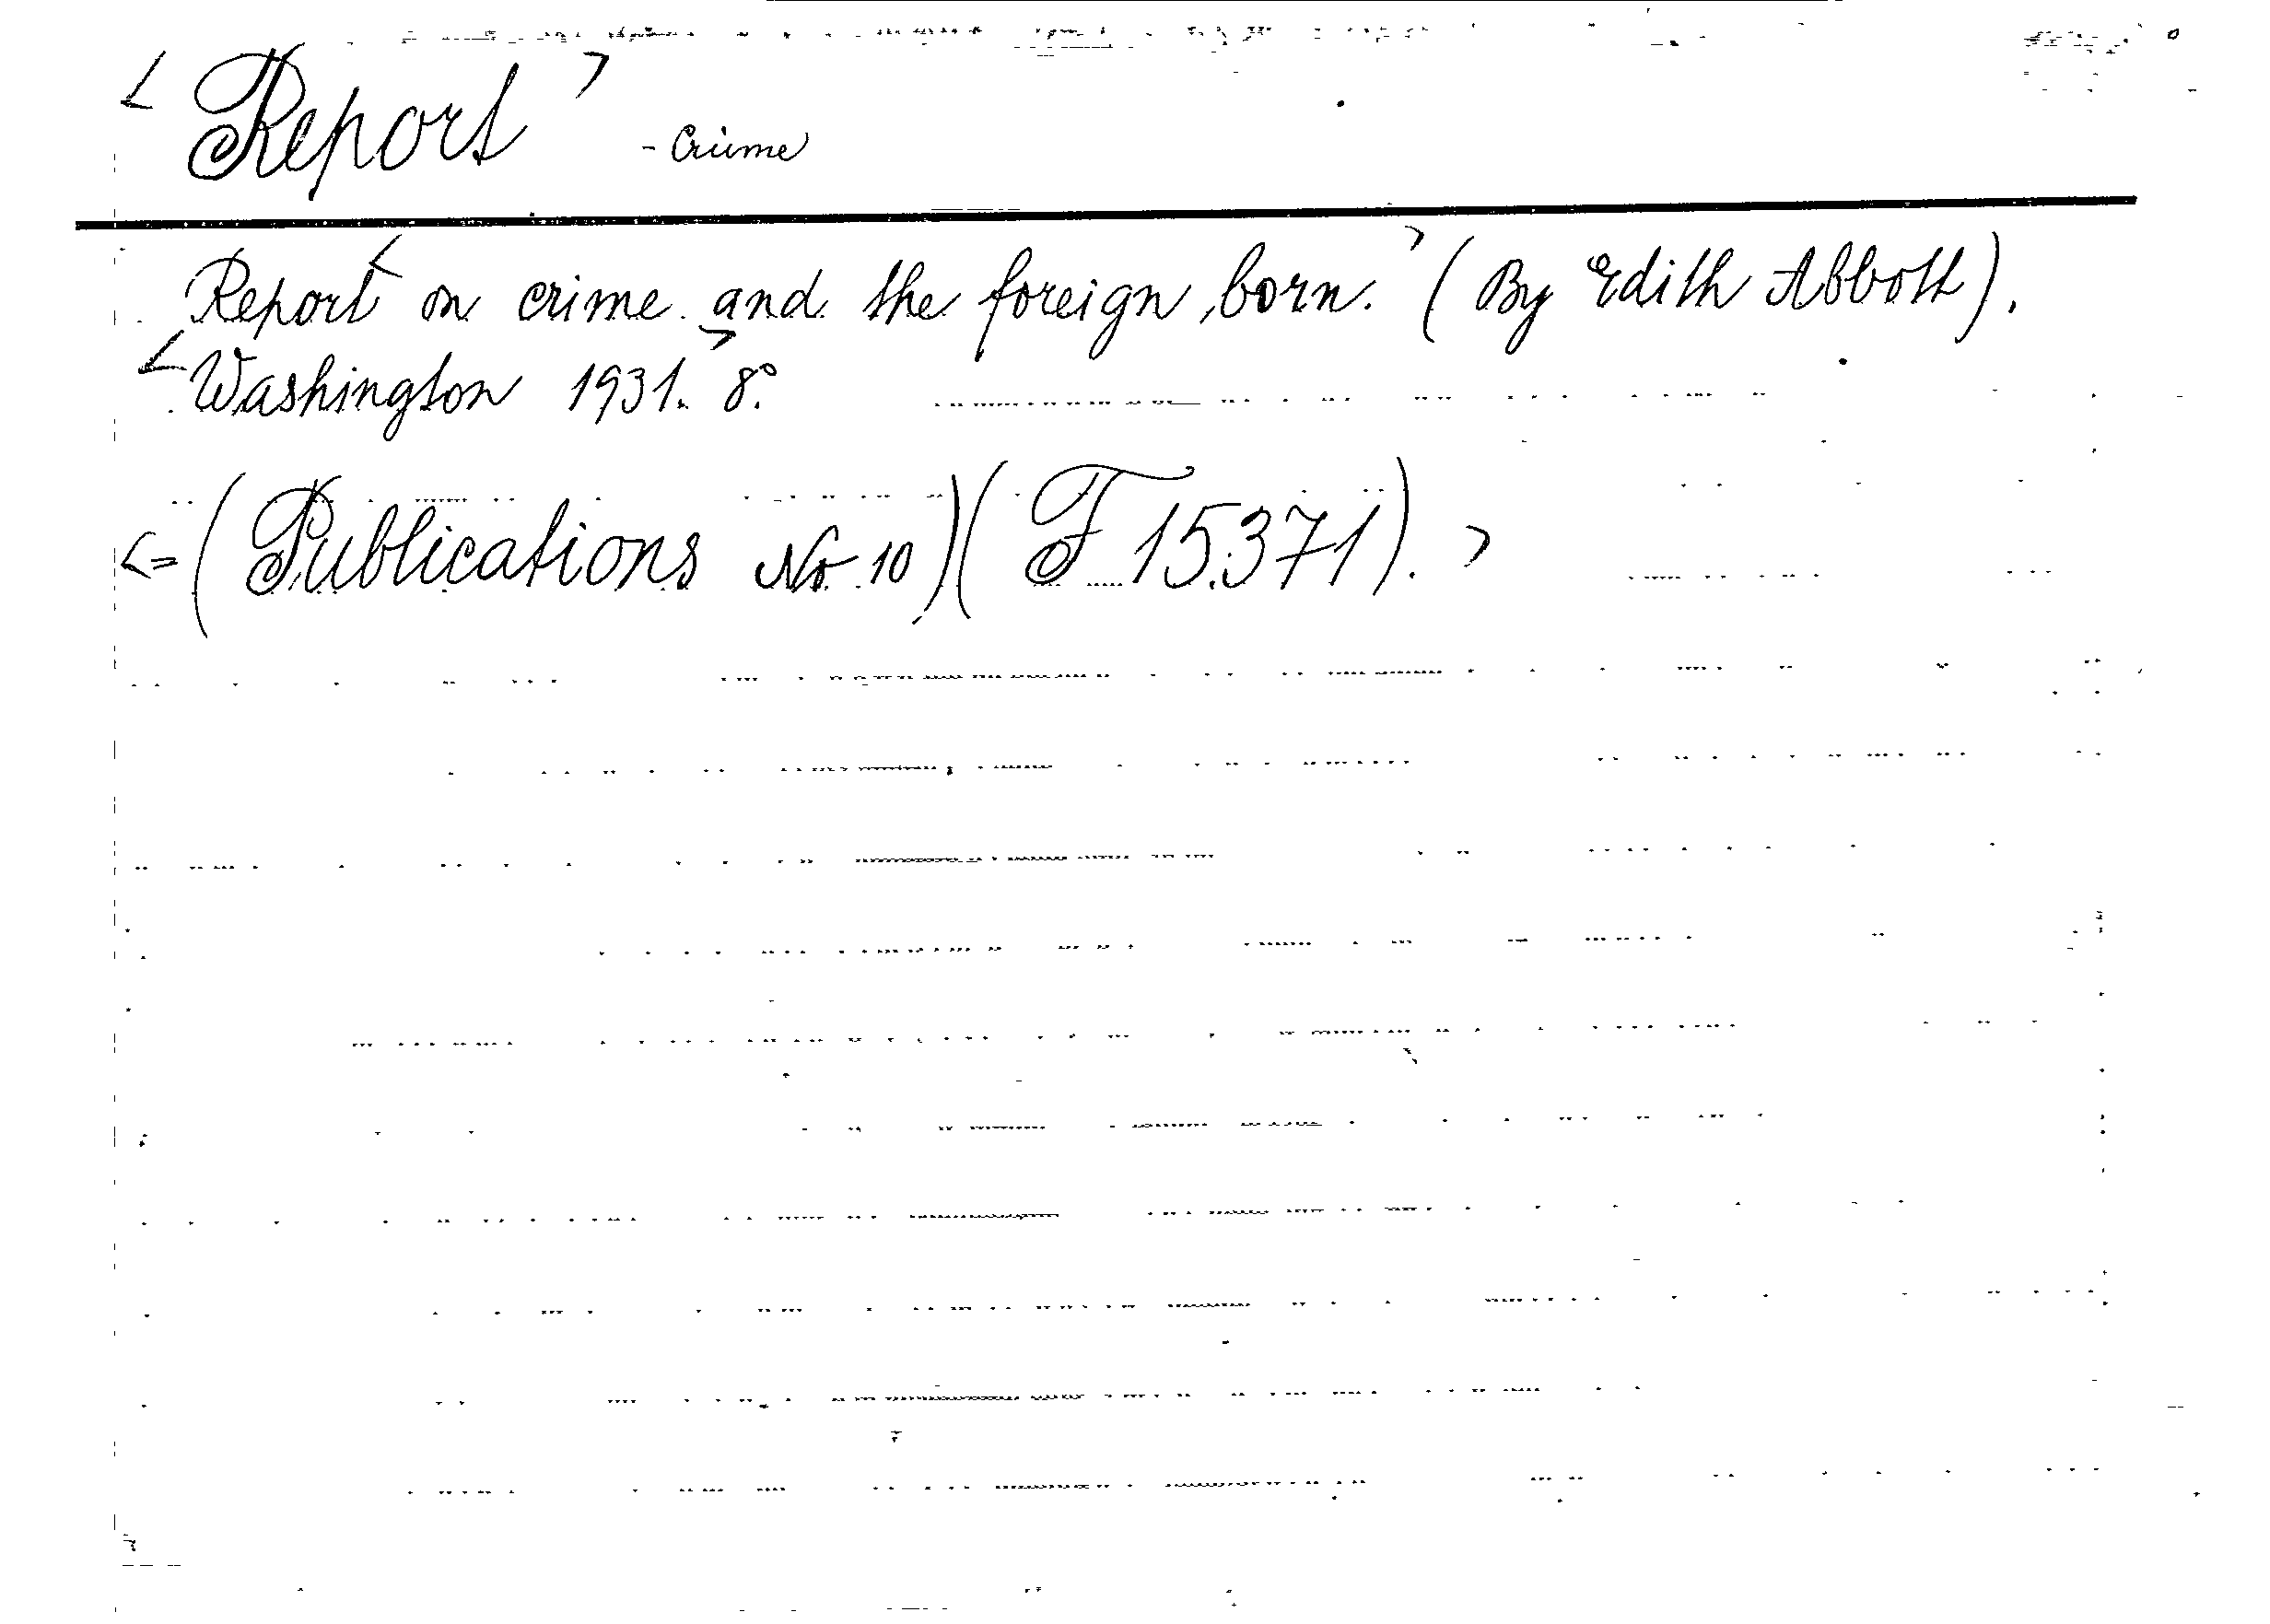 < Report > - Crime
Report < on crime and the foreign born. > (By Edith Abbott).
< Washington 1931. > 8°.
<= (Publications No 10) (F 15.371). >